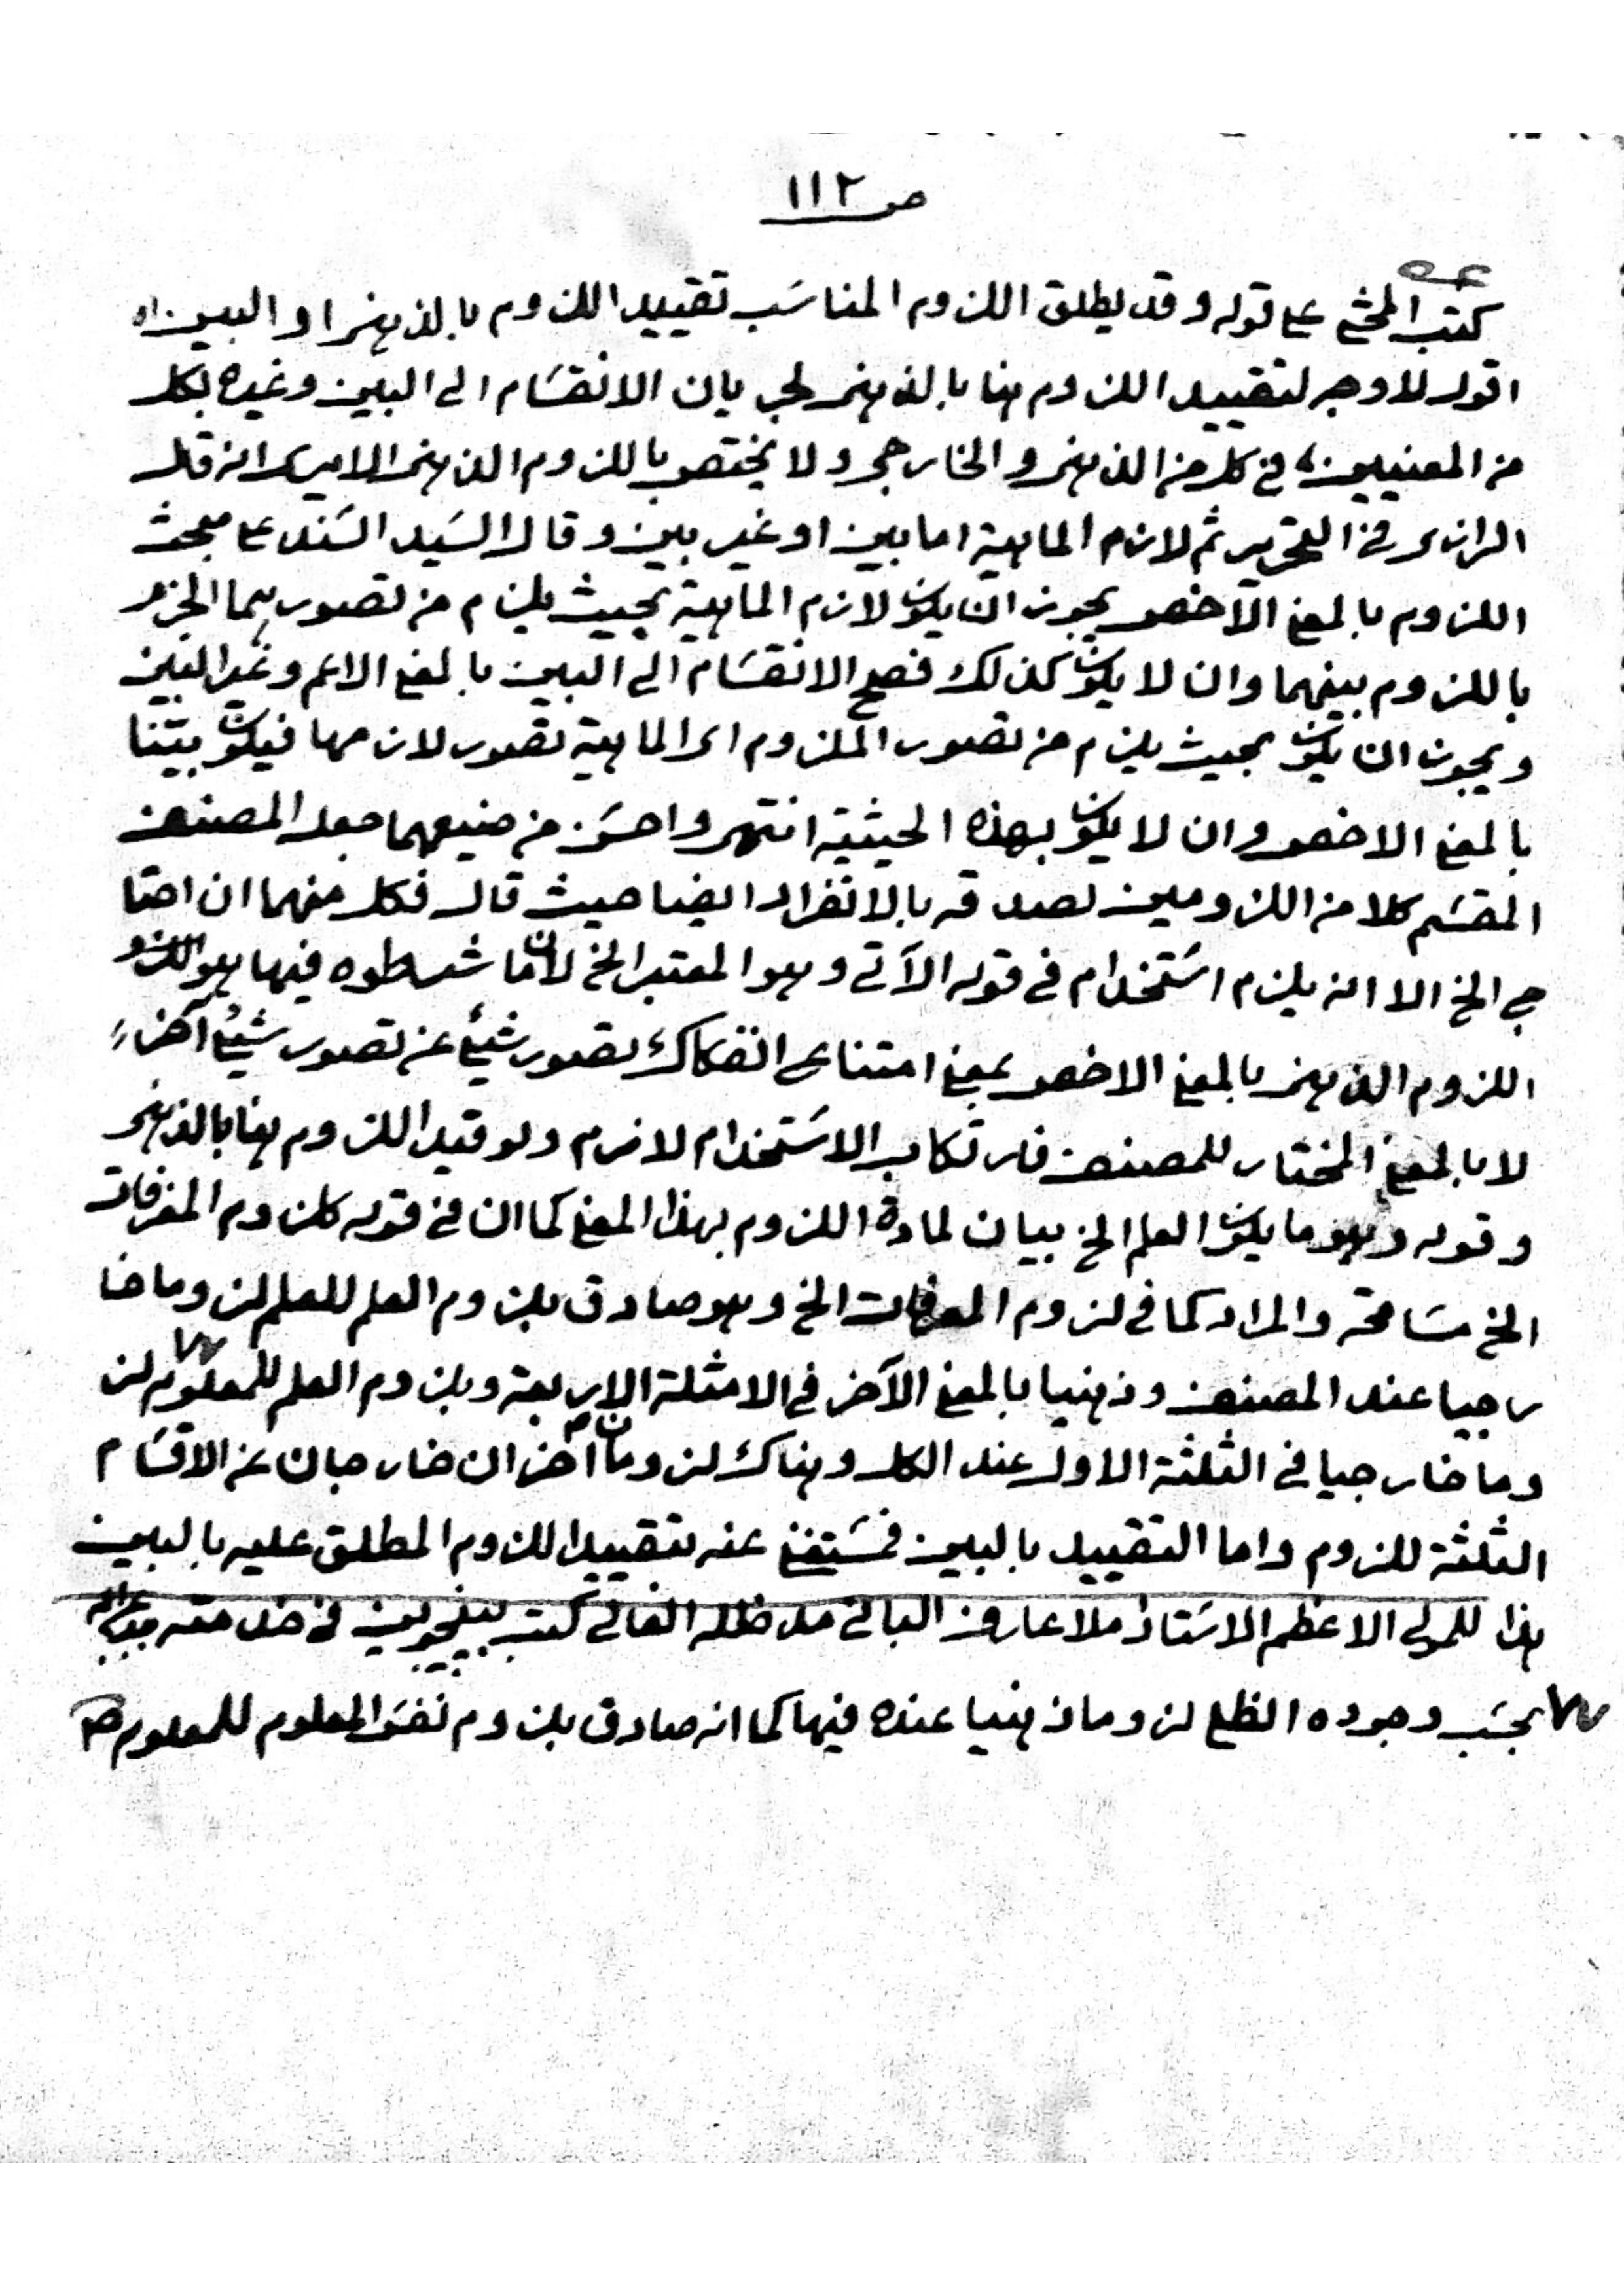 ص ١١٢
كتب المحشي على قوله وقد يطلق اللزوم المناسب تقييد اللزوم بالذهني او البين اه
اقول لا وجه لتقييد اللزوم هنا بالذهني لجريان الانقسام الى البين وغيره بكل
من المعنيين في كل من الذهني والخارجي ولا يختص باللزوم الذهني الا يرى انه قال
الرازي في التحرير ثم لازم الماهية اما بين او غير بين وقال السيد السند على مبحث
اللزوم بالمعنى الاخص يجوز ان يكون لازم الماهية بحيث يلزم من تصورهما الجزم
باللزوم بينهما وان لا يكون كذلك فصح الانقسام الى البين بالمعنى الاعم وغير البين
ويجوز ان يكون بحيث يلزم من تصور الملزوم اى الماهية تصور لازمها فيكون بينا
بالمعنى الاخص وان لا يكون بهذه الحيثية انتهى واحسن من صنيعهما جعل المصنف
المقسم كلا من اللزومين لصدقه بالانفراد ايضا حيث قال فكل منهما ان احتا
ج الخ الا انه يلزم استخدام في قوله الآتي وهو المعتبر الخ لان ما شرطوه فيها هو
اللزوم الذهني بالمعنى الاخص بمعنى امتناع انفكاك تصور شيئ عن تصور شيئ آخر
لا بالمعنى المختار للمصنف فارتكاب الاستخدام لازم ولو قيد اللزوم هنا بالذهني
وقوله وهو ما يكون العلم الخ بيان لمادة اللزوم بهذا المعنى كما ان في قوله كلزوم المعرفات
الخ مسامحة والمراد كما في لزوم المعرفات الخ وهو صادق بلزوم العلم للعلم لزوما خا
رجيا عند المصنف وذهنيا بالمعنى الآخر في الامثلة الاربعة وبلزوم العلم للمعلوم لز
وما خارجيا في الثلثة الاول عند الكل وهناك لزومان آخران خارجان عن الاقسام
الثلثة للزوم واما التقييد بالبين فمستغنى عنه بتقييد اللزوم المطلق عليه بالبين
هذا للمولى الاعظم الاستاذ ملا عارف الباني مد ظله العالي كتب في خدمته
بحسب وجوده الظلي لزوما ذهنيا عنده فيها كما انه صادق بلزوم نفس المعلوم للمعلوم صح